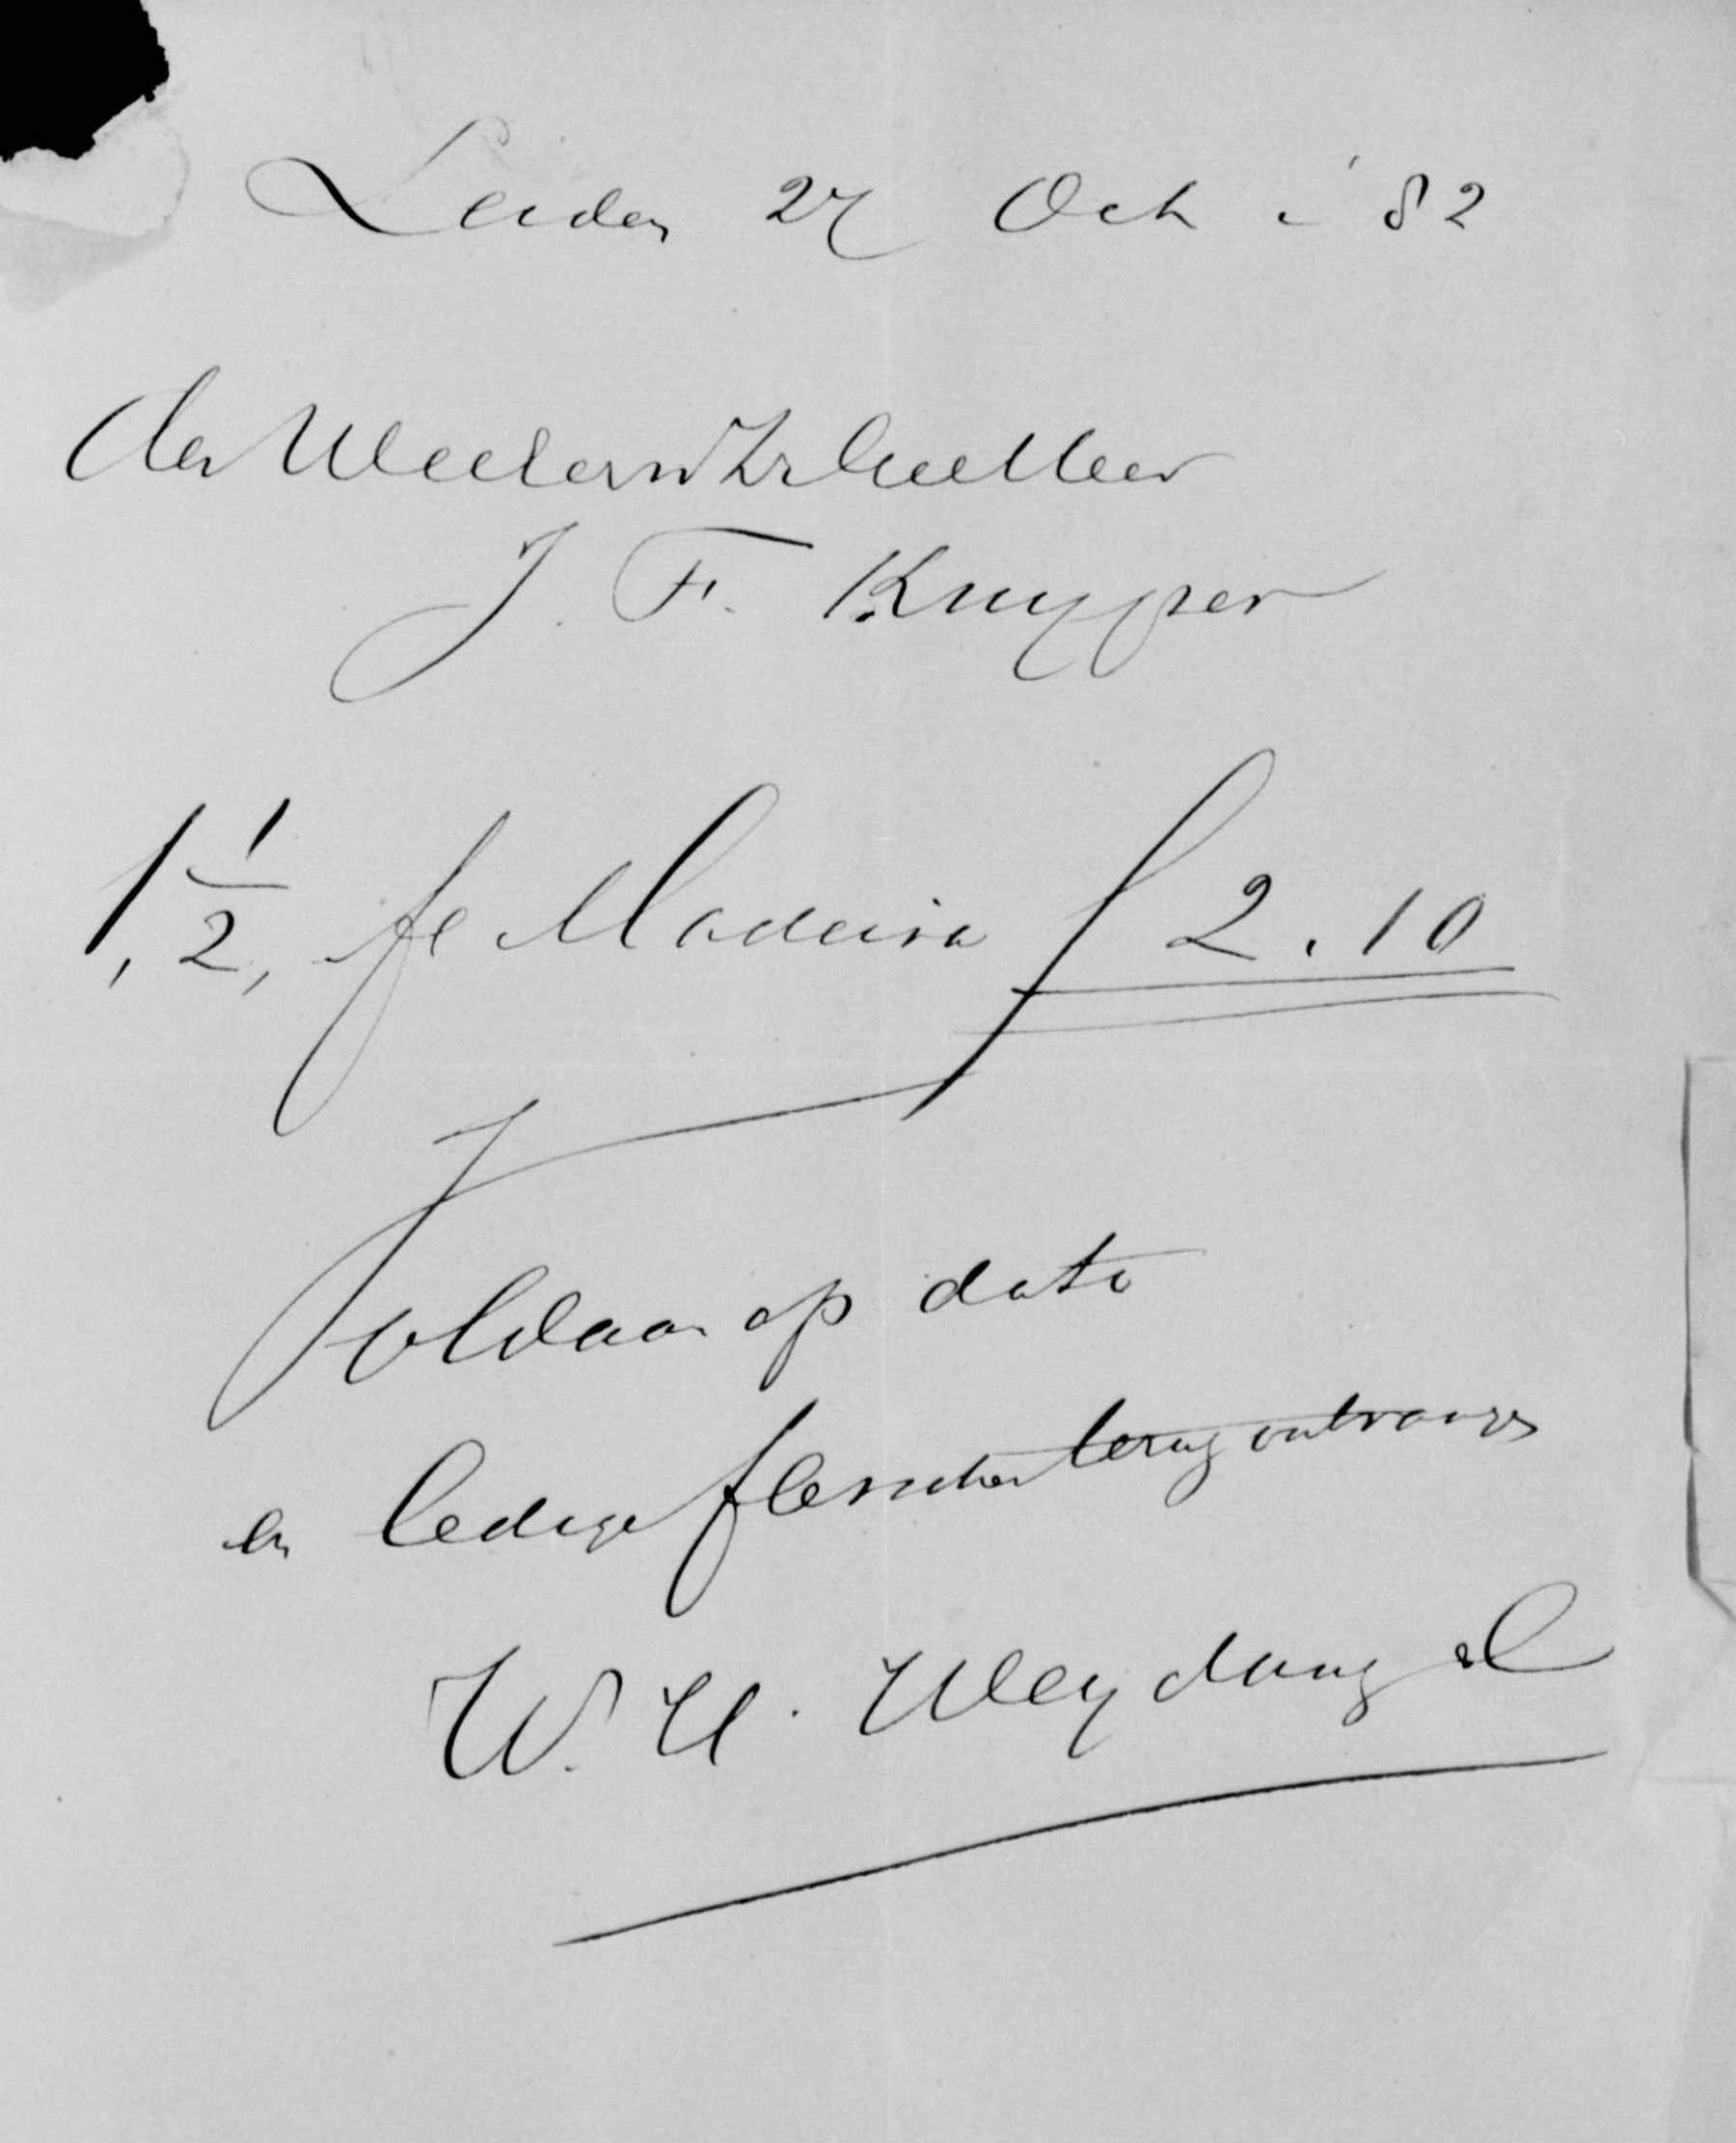 Leiden 27 Oct '82
den Weledelen Heer
J. F. Kuyper
1 1/2 fl Madeira f 2.10
Voldaan op dato
en ledige flesschen terug ontvangen
W. H.